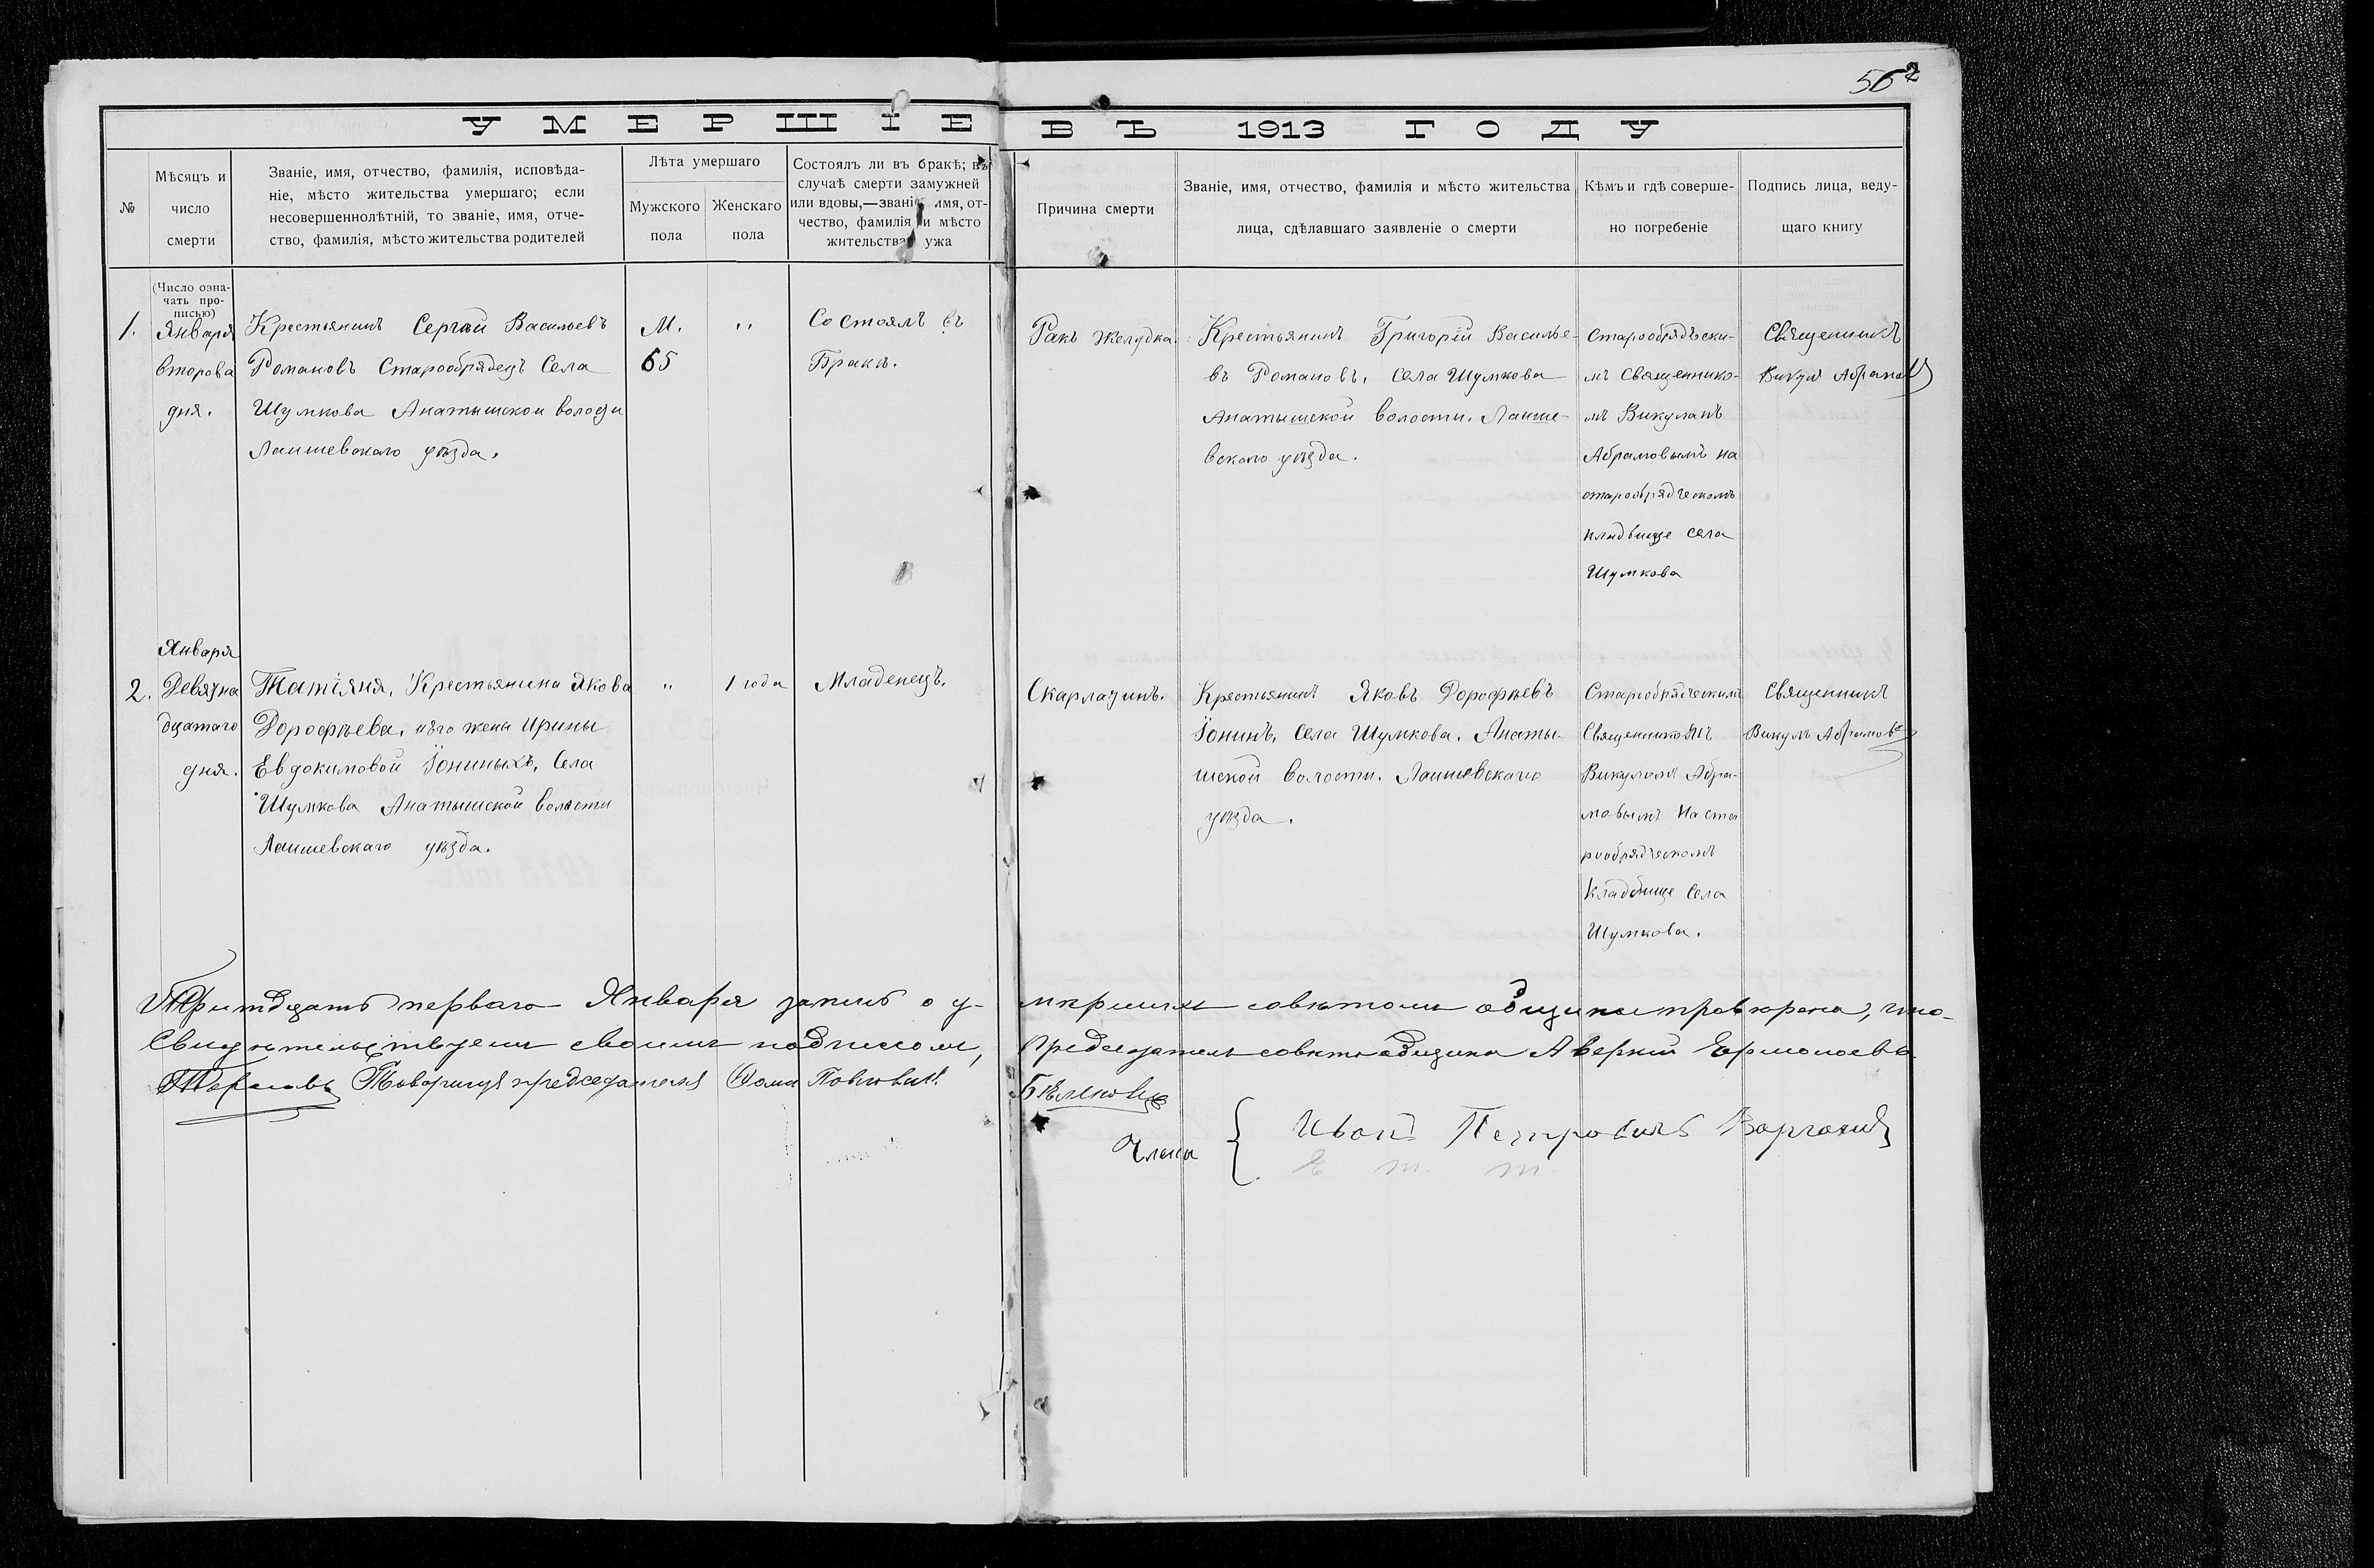 562
УМЕРШІЕ ВЪ 1913 ГОДУ
№
Мѣсяцъ и
число
смерти
Званіе, имя, отчество, фамилія, исповѣда-
ніе, мѣсто жительства умершаго; если
несовершеннолѣтній, то званіе, имя, отче-
ство, фамилія, мѣсто жительства родителей
Лѣта умершаго
Мужского
пола
Женскаго
пола
Состоялъ ли въ бракѣ; въ
случаѣ смерти замужней
или вдовы,—званіе, имя, от-
чество, фамилія и мѣсто
жительства мужа
Причина смерти
Званіе, имя, отчество, фамилія и мѣсто жительства
лица, сдѣлавшаго заявленіе о смерти
Кѣмъ и гдѣ соверше-
но погребеніе
Подпись лица, веду-
щаго книгу
(Число озна-
чать про-
писью)
1.
Января
второва
дня.
Крестьянинъ Сергѣй Васильевъ
Романовъ Старообрядецъ Села
Шумкова Анатышской волости
Лаишевскаго уѣзда.
М.
65
"
Состоялъ въ
Бракѣ.
Ракъ желудка.
Крестьянинъ Григорій Василье-
въ Романовъ, села Шумкова
Анатышской волости. Лаише-
вскаго уѣзда.
Старообрядчески-
мъ Священнико-
мъ Викуламъ
Абрамовымъ на
старообрядческомъ
кладбище села
Шумкова
Священникъ
Викулъ Абрамовъ
2.
Января
Девятна
дцатаго
дня.
Татіяна, Крестьянина Якова
Дорофѣева, и его жены Ирины
Евдокимовой Іониныхъ, Села
Шумкова Анатышской волости
Лаишевскаго уѣзда.
"
1 года
Младенецъ.
Скарлатинъ.
Крестьянинъ Яковъ Дорофѣевъ
Іонинъ, Села Шумкова. Анаты-
шской волости. Лаишевскаго
уѣзда.
Старообрядческимъ
Священникомъ
Викуломъ Абра-
мовымъ На ста
рообрядческомъ
Кладбище Села
Шумкова.
Священникъ
Викулъ Абрамовъ
Тритдцать перваго Января запись о у-
мершихъ совѣтомъ общины провѣрена, что
Свидѣтельствуемъ своимъ подписомъ,
Председатель совѣта общины Аверкій Ермолаевъ
Товарищъ председателя Фома Павловичъ
Бѣляковъ
Члены { Иванъ Петровичъ